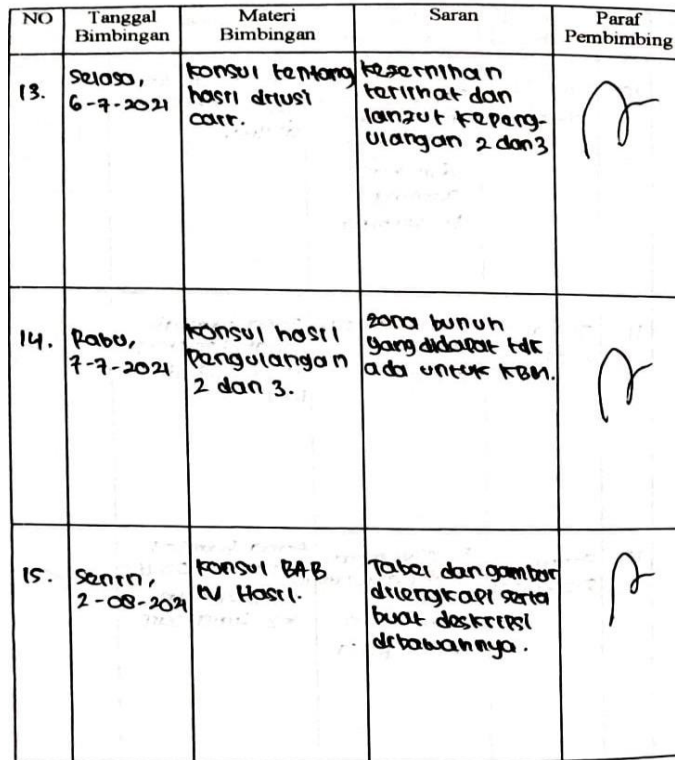 NO
Tanggal
Bimbingan
Materi
Bimbingan
Saran
Paraf
Pembimbing
13.
Selasa,
6-7-2021
Konsul tentang
hasil dilusi
cair.
Kejernihan
terlihat dan
lanjut kepeng-
ulangan 2 dan 3
14.
Rabu,
7-7-2021
Konsul hasil
Pengulangan
2 dan 3.
Zona bunuh
yang didapat tdk
ada untuk KBM.
15.
Senin,
2-08-2021
Konsul BAB
IV Hasil.
Tabel dan gambar
dilengkapi serta
buat deskripsi
dibawahnya.